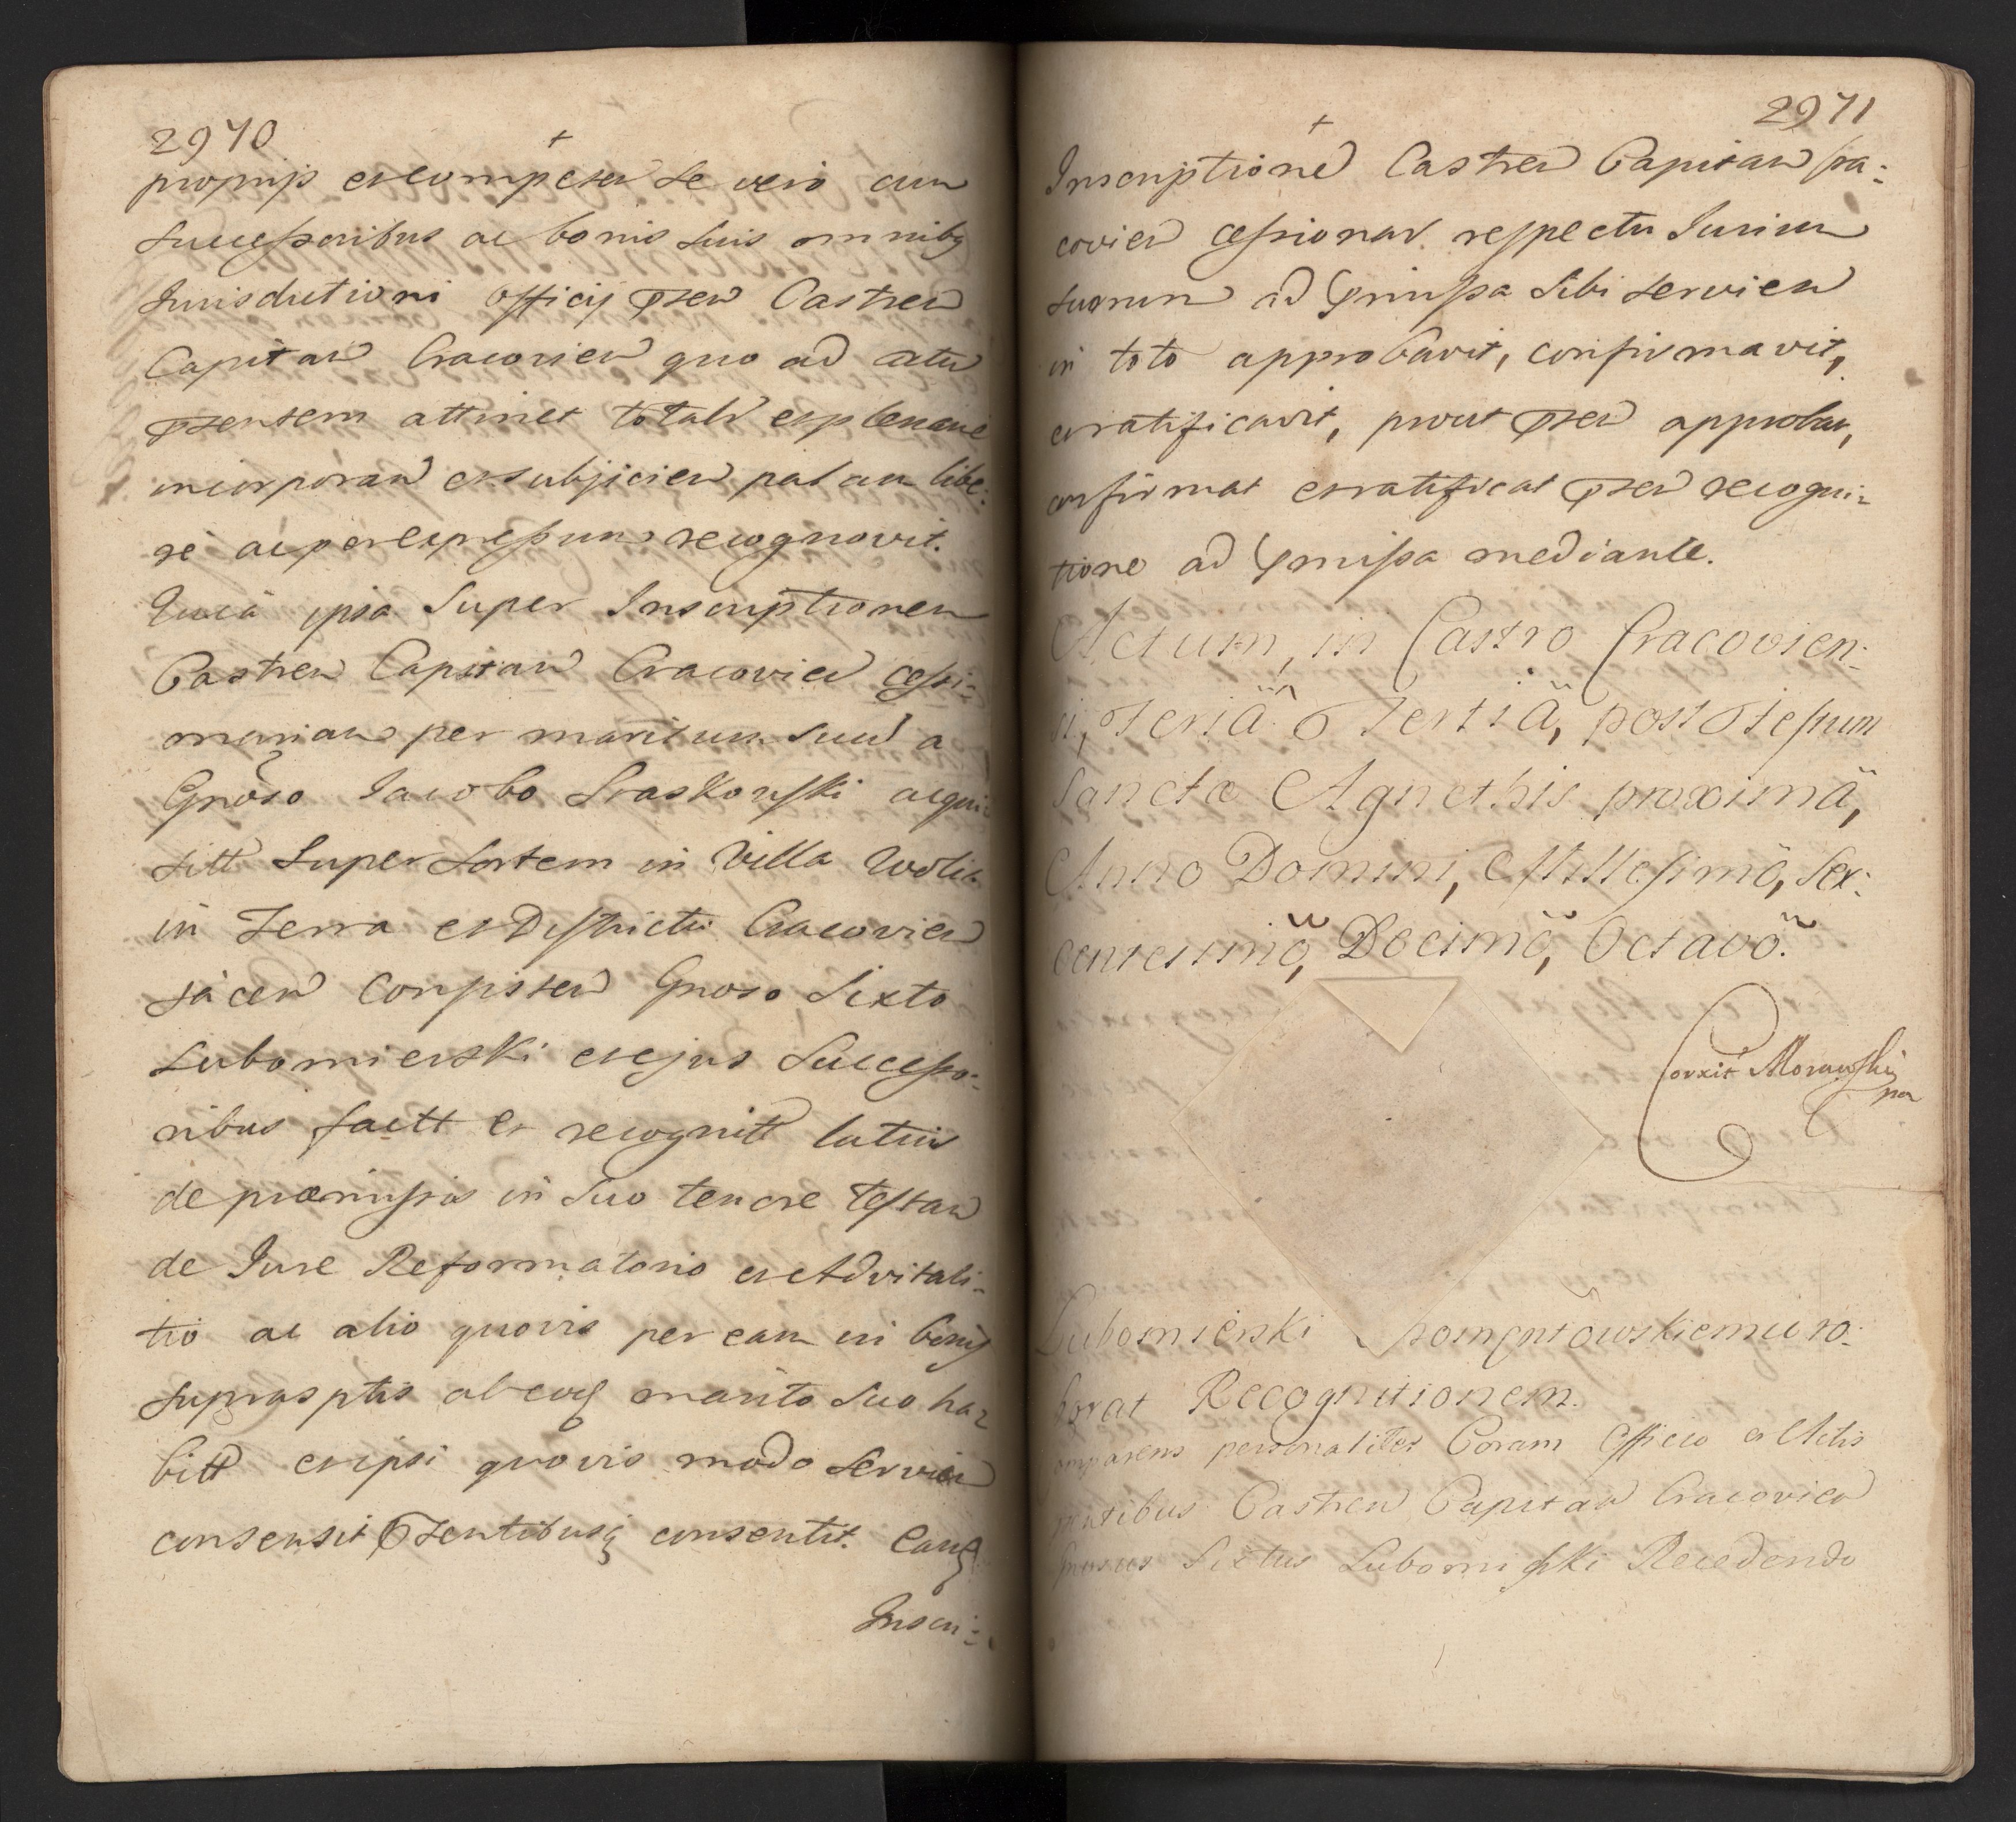 2970
+
proprijs et competen se vero cum
Successoribus ac bonis suis omnibq
Jurisdictioni Officij Pnsen Castren
Capitan Cracovien quo ad actu
Pnsentem attinet totalr et plenarie
incorporan et subjicien palam libe:
rè ac per expressum recognovit.
Quia ipsa Super Inscriptionem
Castren Capitan Cracovien cessi=
onarian per maritum suum a
Gnoso Jacobo Sraskowski acqui
sitt Super Sortem in Villa Wolia
in Terra et Districtu Cracovien
jàcen consisten Gnoso Sixto
Lubomierski et ejus Successo=
ribus factt et recognitt latius
de præmissis in suo tenore testan
de Jure Reformatorio et Advitali=
tio ac alio quovis per eam in bonis
suprasptis ab eoq marito suo ha=
bitt et ipsi quovis modo servien
consensit Psentibusq consentit. Eamq
Inscri=
2971
+
Inscriptione Castren Capitan Cra:
covien cessionar. respectu Jurium
suorum ad Pmissa sibi servien
in toto approbavit, confirmavit,
et ratificavit, prout Psen approbat,
confirmat et ratificat Psen recogni=
tione ad Pmissa mediante.
Actum, in Castro Cracovien:
si, Feriâ Tertiâ, post Festum
Sanctæ Agnethis proximâ,
Anno Domini, Millesimô, Sex:
centesimô, Decimô, Octavô.
Corxit Morawski
mp
Lubomierski Pomęntowskiemu ro:
borat Recognitionem.
Comparens personaliter Coram Officio et Actis
pntibus Castren Capitan Cracovien
Gnosus Sixtus Lubomirski Recedendo